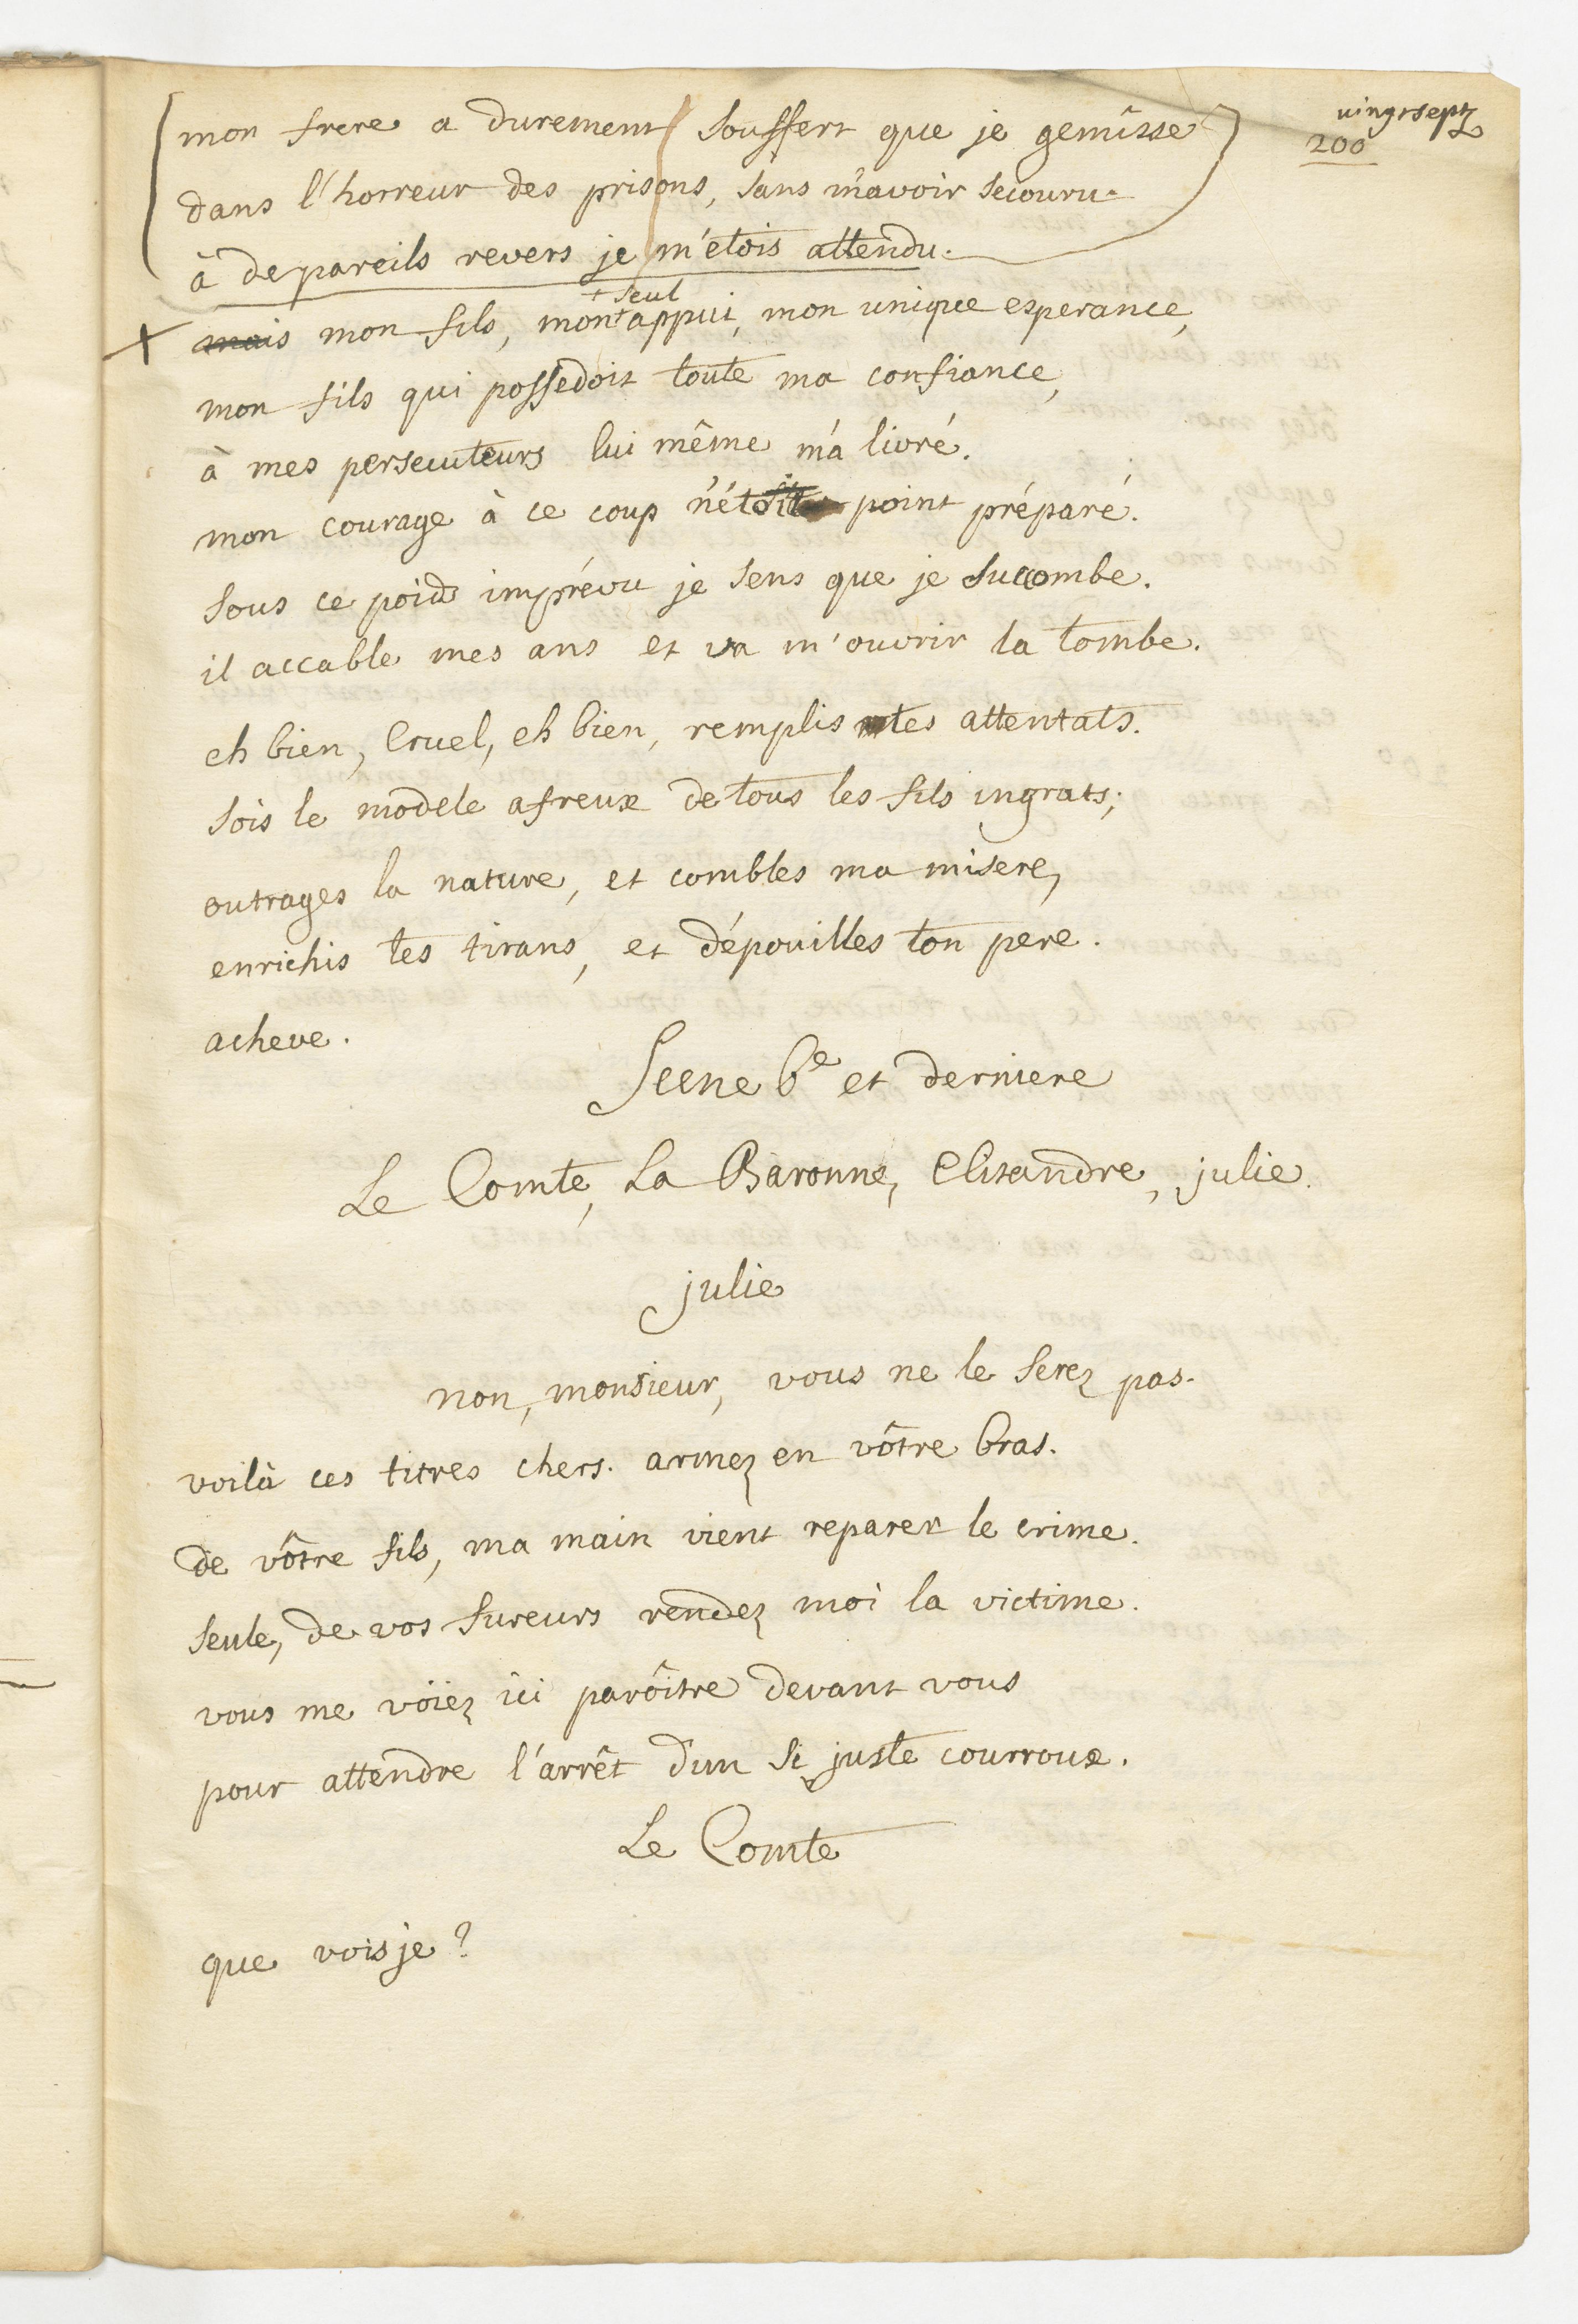 vingtsept
200
mon frere a durement souffert que je gemîsse
dans l'horreur des prisons, sans m'avoir secouru.
à de pareils revers je m'étois attendu.
+ seul
mais mon fils, mon + appui, mon unique esperance,
mon fils qui possedoit toute ma confiance,
à mes persecuteurs lui même m'a livré.
mon courage à ce coup n'étoit point préparé.
sous ce poids imprévu je sens que je succombe.
il accable mes ans et va m'ouvrir la tombe.
eh bien, Cruel, eh bien, remplis tes attentats.
sois le modele afreux de tous les fils ingrats;
outrages la nature, et combles ma misere,
enrichis tes tirans, et dépouilles ton pere.
acheve.
Scene 6e et derniere
Le Comte, La Baronne, Clitandre, julie.
julie
non, monsieur, vous ne le serez pas.
voilà ces titres chers. armez en vôtre bras.
de vôtre fils, ma main vient reparer le crime.
seule, de vos fureurs rendez moi la victime.
vous me voïez ici parôitre devant vous
pour attendre l'arrêt d'un si juste courroux.
Le Comte
que vois je?